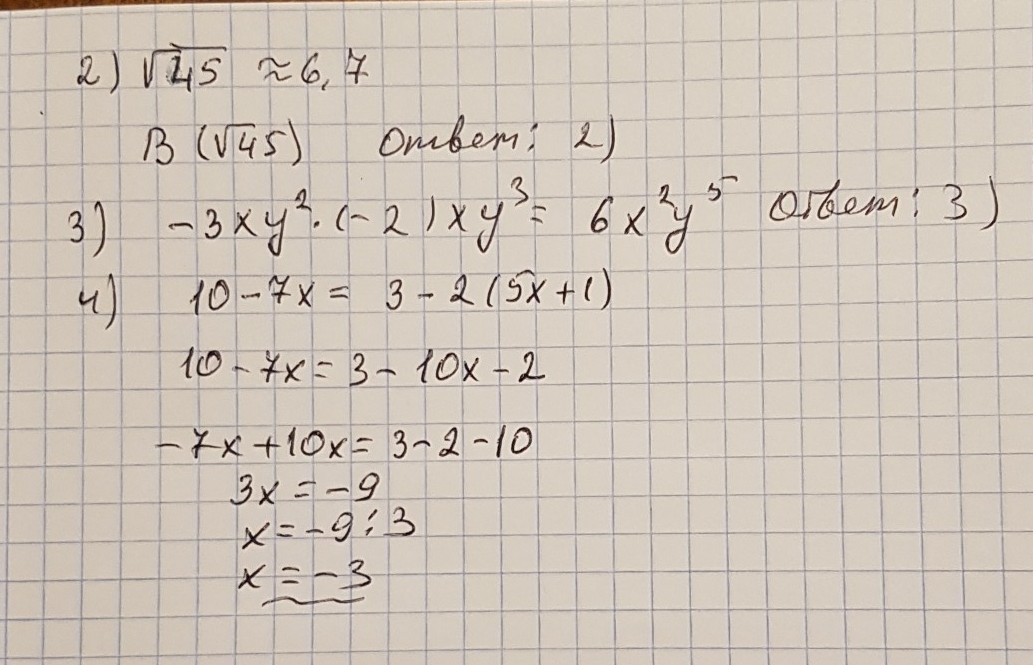 2) √45 ≈ 6,7
B (√45) Ответ: 2)
3) -3xy²·(-2)xy³= 6x²y⁵ Ответ: 3)
4) 10-7x = 3-2(5x+1)
10-7x = 3-10x-2
-7x+10x = 3-2-10
3x = -9
x = -9:3
x = -3